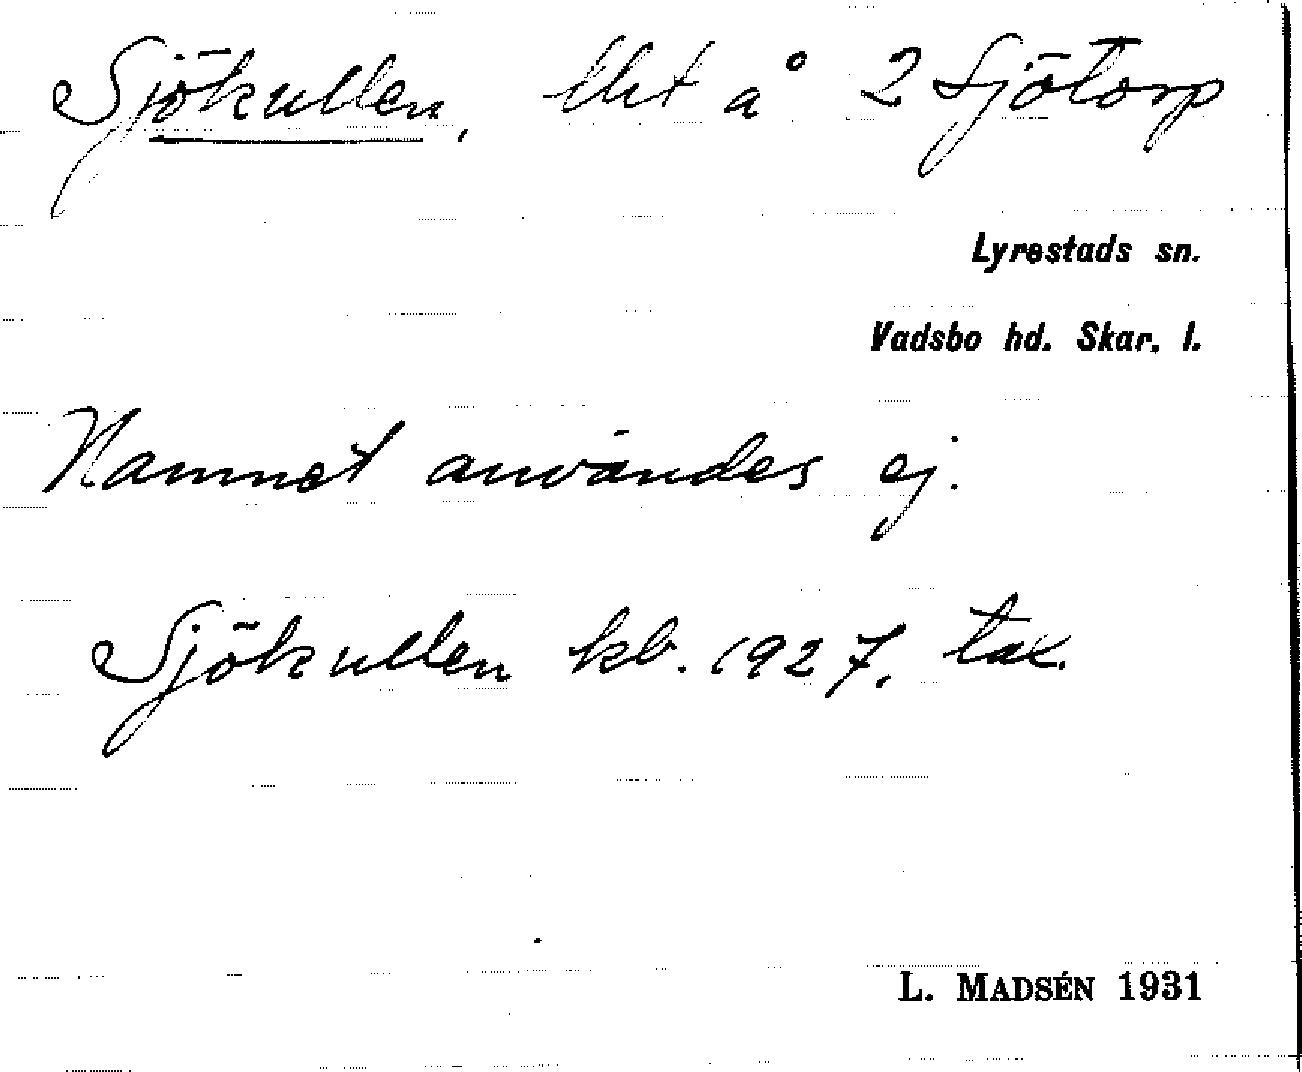 Sjökullen, lht å 2 Sjötorp
Lyrestads sn.
Vadsbo hd. Skar. l.
Namnet användes ej.
Sjökullen kb. 1927, tax.
L. MADSÉN 1931